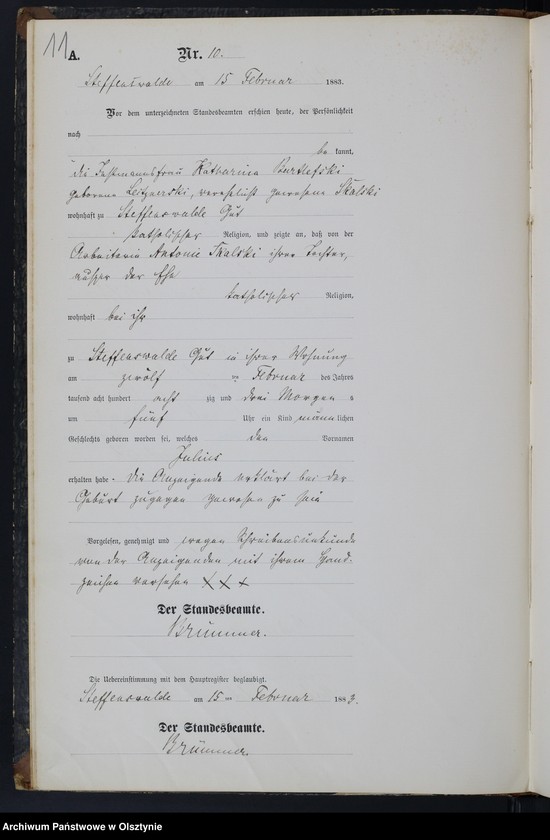 11
A.
Nr. 10.
Steffenswalde am 15 Februar 1883.
Vor dem unterzeichneten Standesbeamten erschien heute, der Persönlichkeit
nach
be kannt,
die Instmannsfrau Katharina
geborene verehelicht gewesene Skalski
wohnhaft zu Steffenswalde Gut
katholischer Religion, und zeigte an, daß von der
Arbeiterin Antonie Skalski ihrer Tochter,
außer der Ehe
katholischer Religion,
wohnhaft bei ihr
zu Steffenswalde Gut in ihrer Wohnung
am zwölf ten Februar des Jahres
tausend acht hundert acht zig und drei Morgen s
um fünf Uhr ein Kind männlichen
Geschlechts geboren worden sei, welches den Vornamen
Julius
erhalten habe. Die Anzeigende erklärt bei der
Geburt zugegen gewesen zu sein
Vorgelesen, genehmigt und wegen Schreibensunkunde
von der Anzeigenden mit ihrem Hand-
zeichen versehen + + +
Der Standesbeamte.
Brümmer.
Die Uebereinstimmung mit dem Hauptregister beglaubigt.
Steffenswalde am 15 ten Februar 1883.
Der Standesbeamte.
Brümmer.
Archiwum Państwowe w Olsztynie